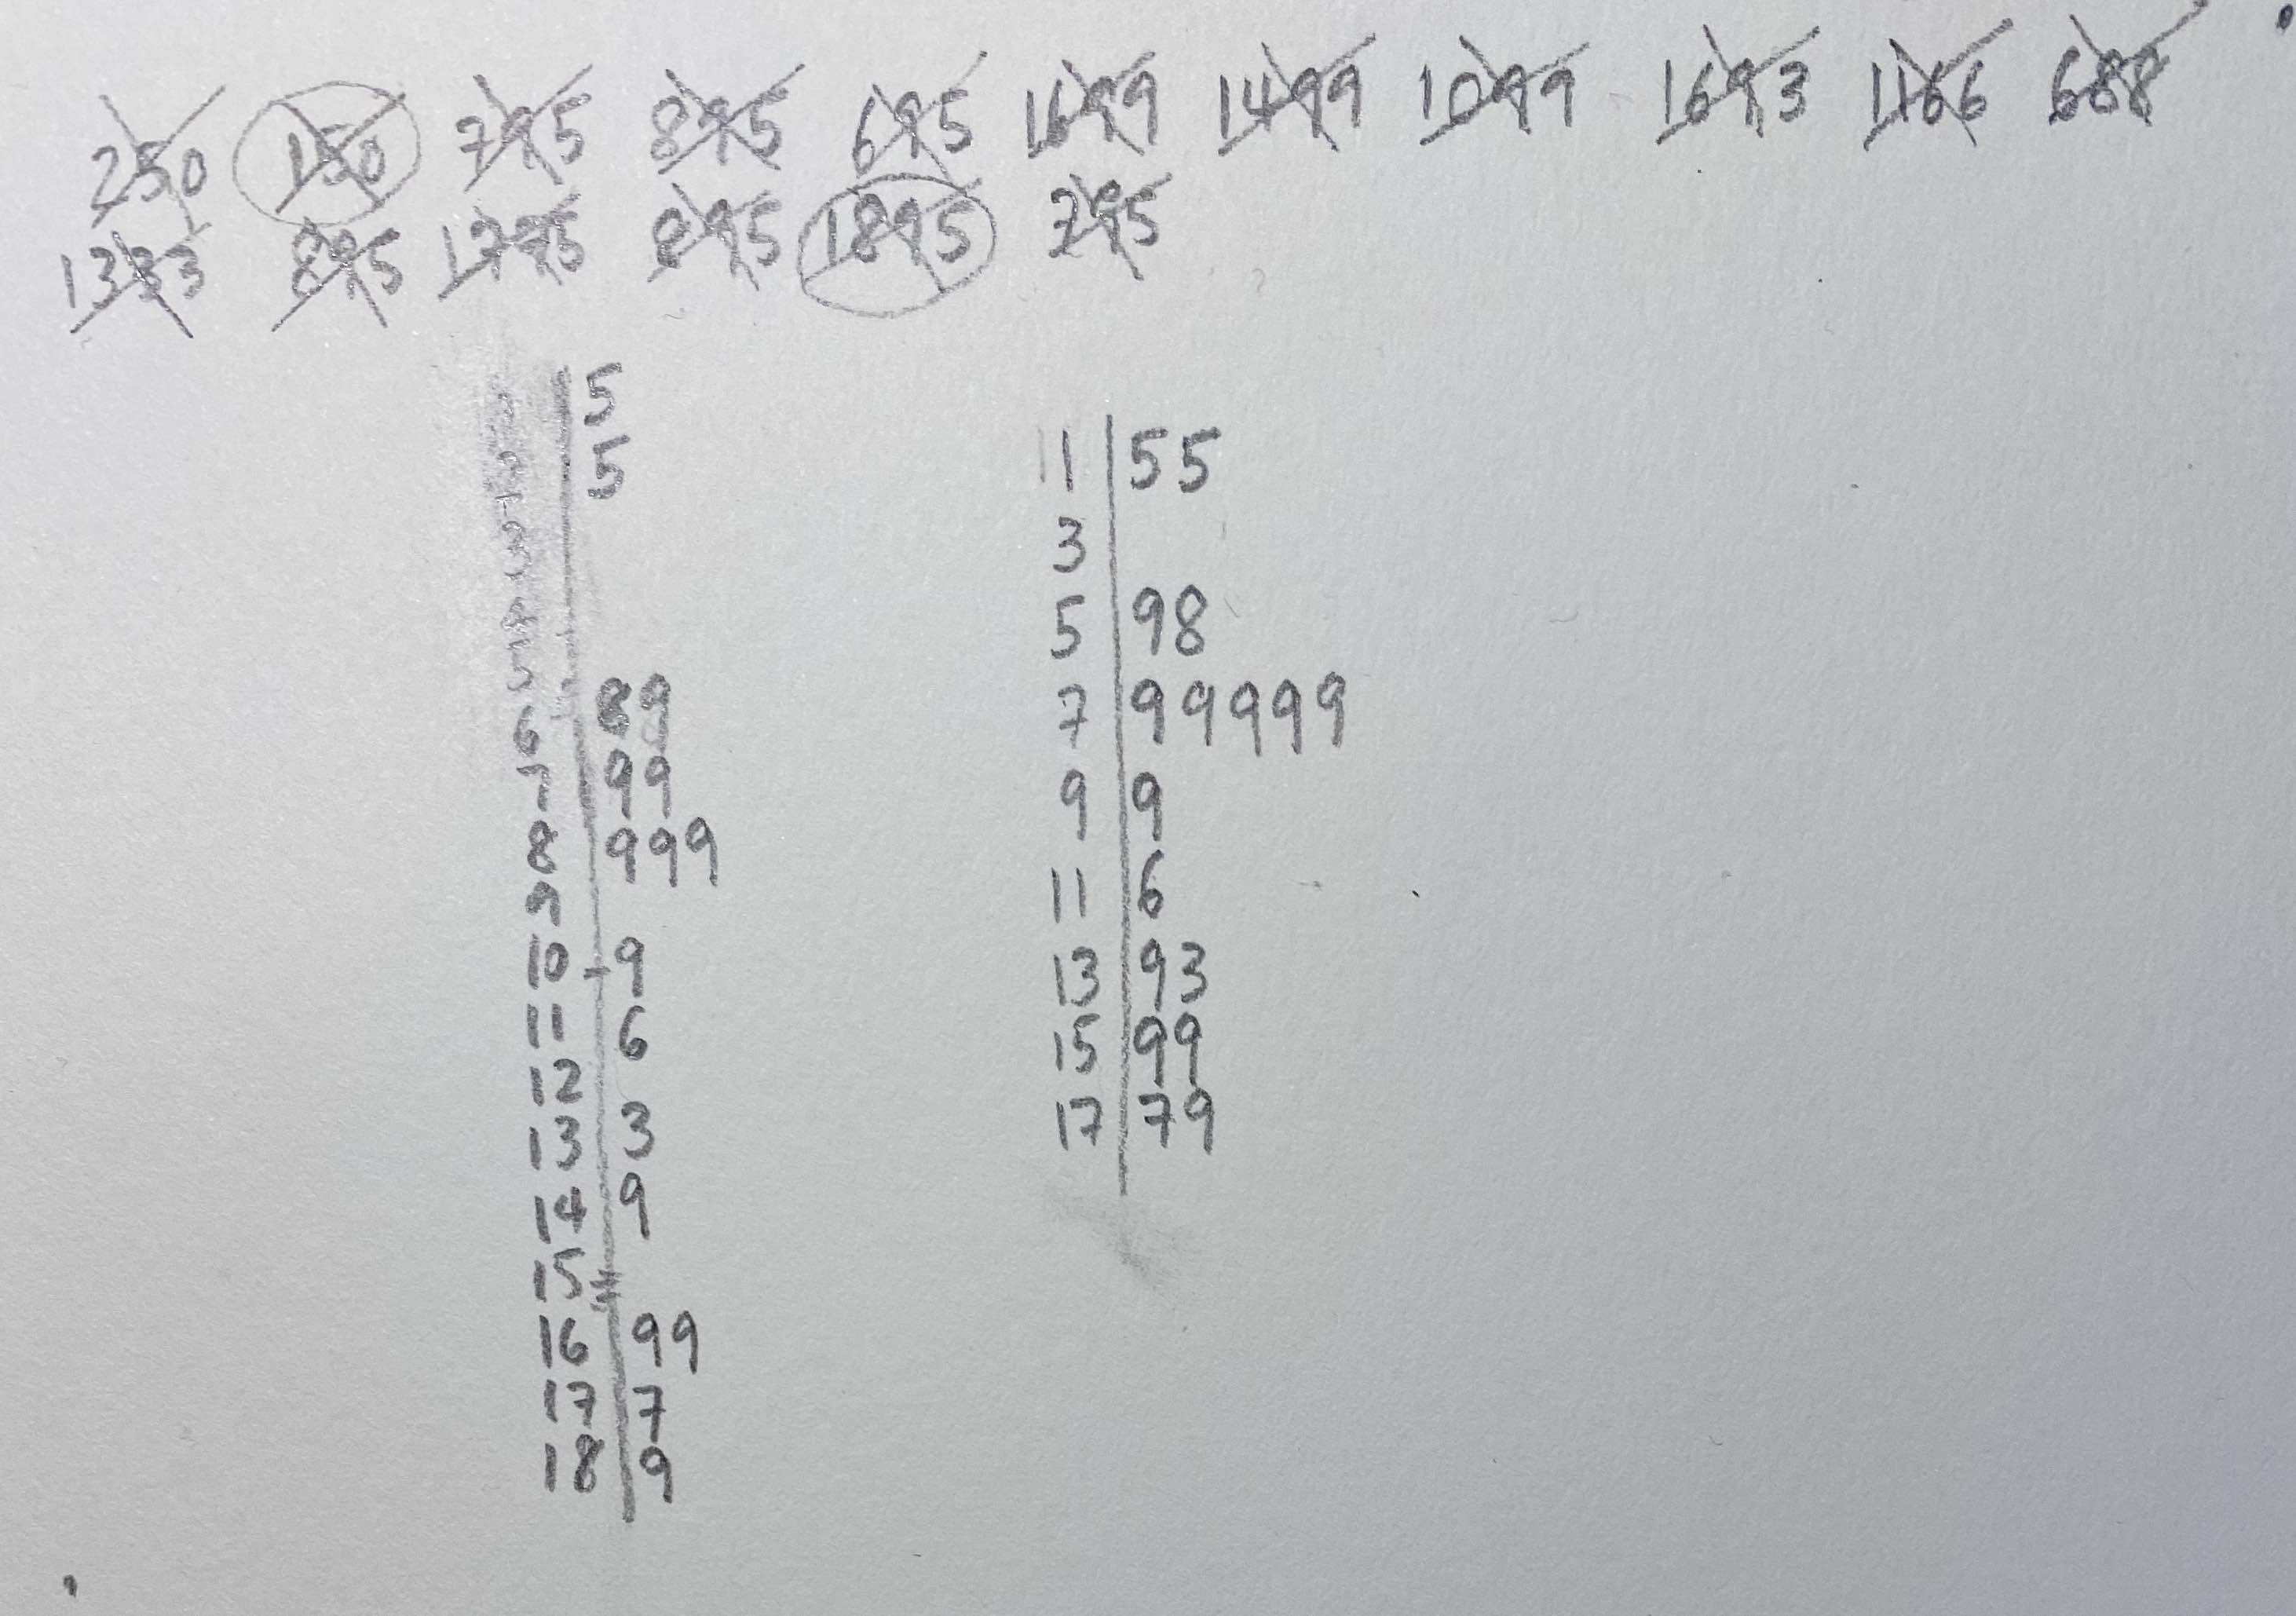 250 150 795 895 695 1699 1499 1099 1693 1166 688
1333 895 1775 895 1895 795
5
5
3
4
5
6 89
7 99
8 999
9
10 9
11 6
12
13 3
14 9
15
16 99
17 7
18 9
1 55
3
5 98
7 99999
9 9
11 6
13 93
15 99
17 79